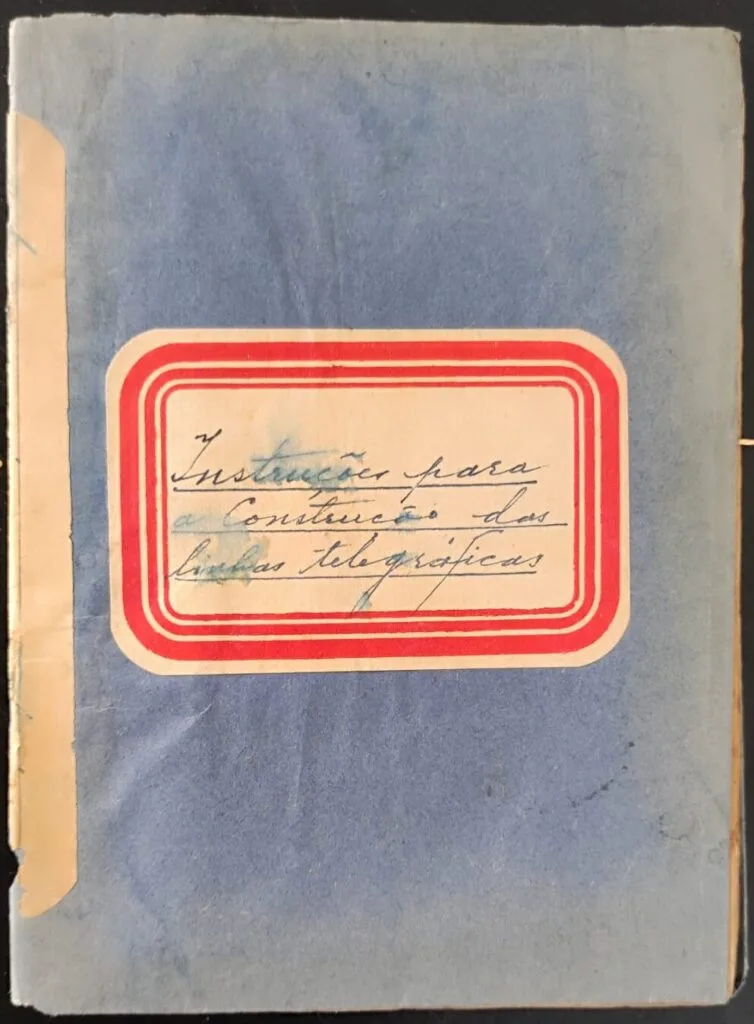 Instruções para
a Construcção das
linhas telegráficas